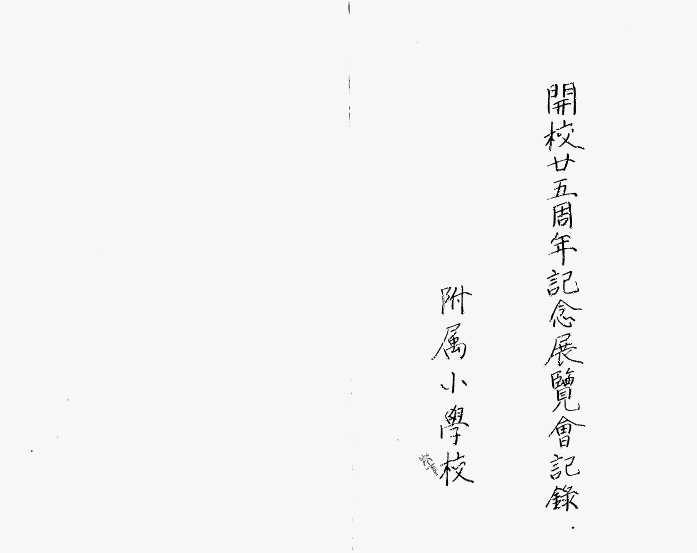 開校廿五周年記念展覽會記錄.
附属小學校